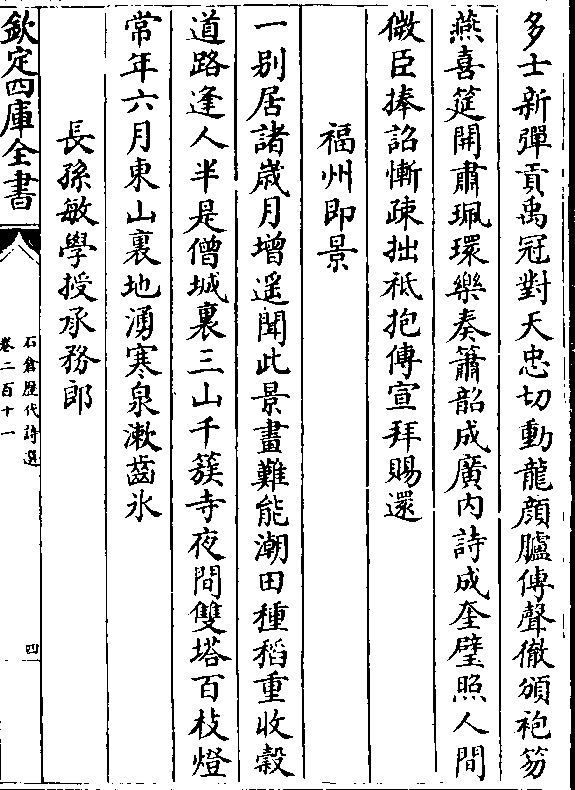 多士新彈貢禹冠對天忠切動龍顔臚傳聲徹頒袍笏
燕喜筵開肅珮環樂奏簫韶成廣内詩成奎璧照人間
微臣捧詔慚疎拙祗抱傳宣拜賜還
福州即景
一别居諸歲月增遥聞此景畫難能潮田種稻重收榖
道路逢人半是僧城裏三山千簇寺夜間雙塔百枝燈
常年六月東山裏地湧寒泉漱齒氷
長孫敏學授承務郎
欽定四庫全書
石倉歷代詩選
卷二百十一
四